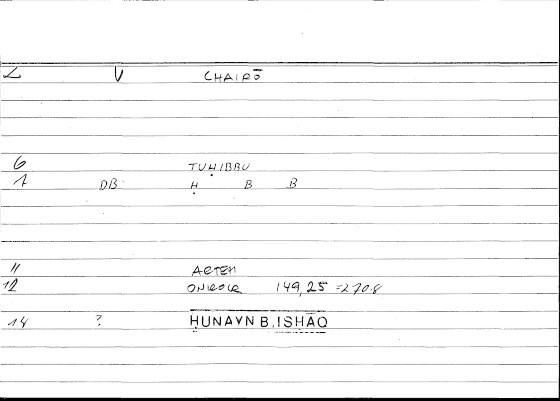 L V CHAIRŌ
6 TUḤIBBU
7 DB Ḥ B B
11 ARTEM
12 ONIROCR 149,25 =270.8
14 ? ḤUNAYN B. ISḤĀQ